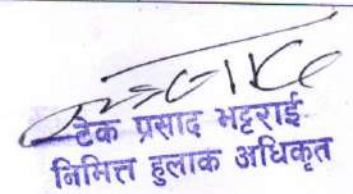 टेक प्रसाद भट्टराई
निमित्त हुलाक अधिकृत